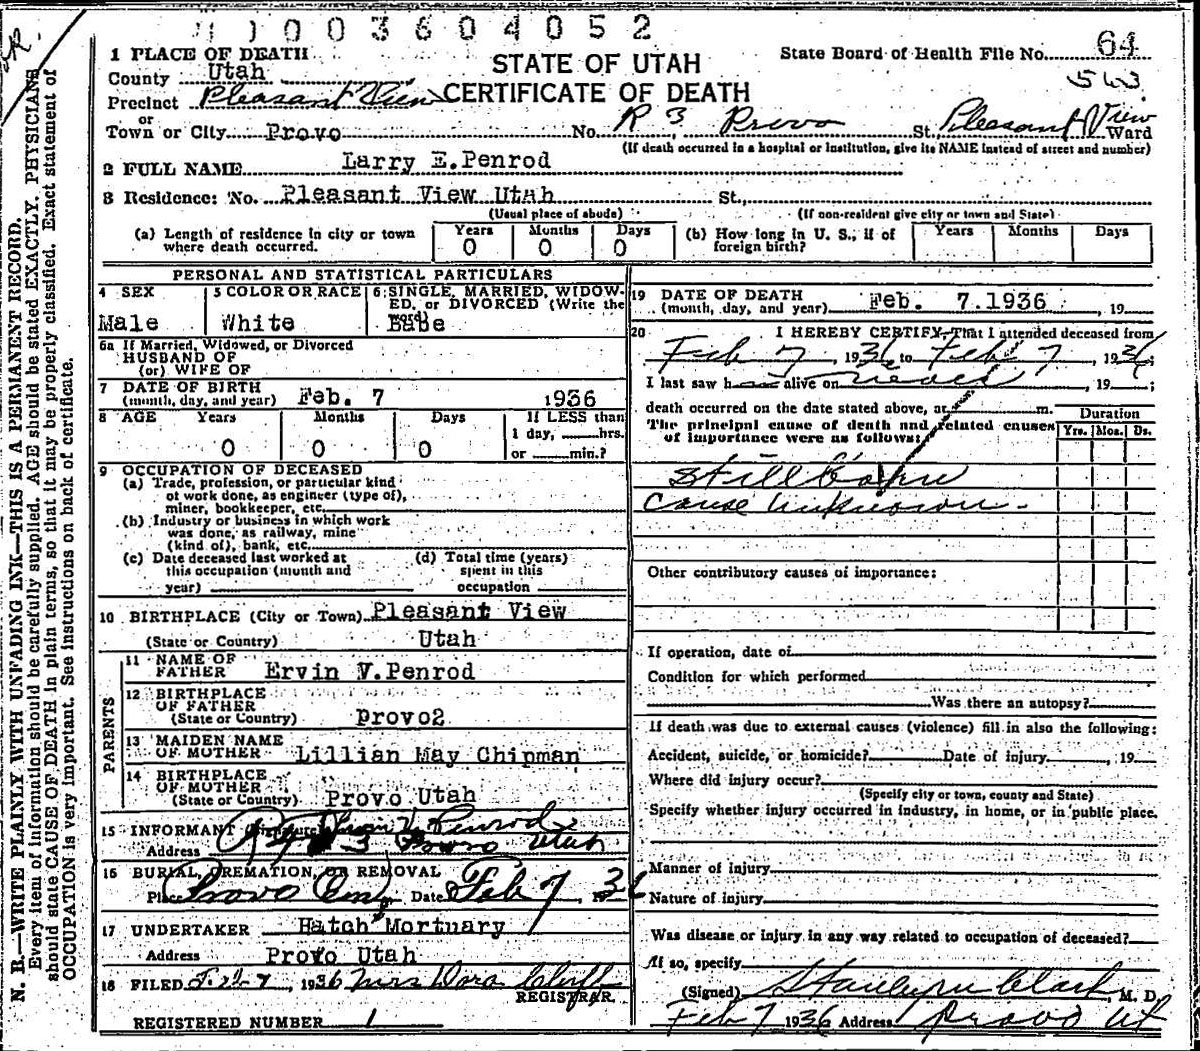 1003604052
1 PLACE OF DEATH
STATE OF UTAH
State Board of Health File No. 64
County Utah
543
Precinct Pleasant View
CERTIFICATE OF DEATH
or
Town or City Provo No. R 3 Provo St. Pleasant View Ward
(If death occurred in a hospital or institution, give its NAME instead of street and number)
2 FULL NAME Larry E.Penrod
3 Residence: No. Pleasant View Utah St.,
(Usual place of abode) (If non-resident give city or town and State)
(a) Length of residence in city or town where death occurred. Years 0 Months 0 Days 0 (b) How long in U. S., if of foreign birth? Years Months Days
PERSONAL AND STATISTICAL PARTICULARS
4 SEX Male
5 COLOR OR RACE White
6 SINGLE, MARRIED, WIDOWED, or DIVORCED (Write the word) Babe
6a If Married, Widowed, or Divorced
HUSBAND OF
(or) WIFE OF
7 DATE OF BIRTH
(month, day, and year) Feb. 7 1936
8 AGE Years Months Days If LESS than
0 0 0 1 day, hrs.
or min.?
9 OCCUPATION OF DECEASED
(a) Trade, profession, or particular kind
of work done, as engineer (type of),
miner, bookkeeper, etc.
(b) Industry or business in which work
was done, as railway, mine
(kind of), bank, etc.
(c) Date deceased last worked at
this occupation (month and
year)
(d) Total time (years)
spent in this
occupation
10 BIRTHPLACE (City or Town) Pleasant View
(State or Country) Utah
PARENTS
11 NAME OF
FATHER Ervin V.Penrod
12 BIRTHPLACE
OF FATHER
(State or Country) Provo2
13 MAIDEN NAME
OF MOTHER Lillian May Chipman
14 BIRTHPLACE
OF MOTHER
(State or Country) Provo Utah
15 INFORMANT (Signature) Ervin V. Penrod
Address 3 Provo Utah
16 BURIAL, CREMATION, OR REMOVAL
Place Provo Cem. Date Feb 7 1936
17 UNDERTAKER Hatch Mortuary
Address Provo Utah
18 FILED Feb 7, 1936 Mrs Dora Cluff
REGISTRAR.
REGISTERED NUMBER 1
19 DATE OF DEATH
(month, day, and year) Feb. 7.1936, 19
20 I HEREBY CERTIFY, That I attended deceased from
Feb 7, 1936 to Feb 7, 1936;
I last saw h alive on never, 19 ;
death occurred on the date stated above, at m.
The principal cause of death and related causes
of importance were as follows:
Duration
Yrs. Mos. Ds.
Stillborn
Cause Unknown.
Other contributory causes of importance:
If operation, date of
Condition for which performed
Was there an autopsy?
If death was due to external causes (violence) fill in also the following:
Accident, suicide, or homicide? Date of injury , 19
Where did injury occur?
(Specify city or town, county and State)
Specify whether injury occurred in industry, in home, or in public place.
Manner of injury
Nature of injury
Was disease or injury in any way related to occupation of deceased?
If so, specify
(Signed) Stanlynn Clark, M. D.
Feb 7 1936 Address Provo Ut
N. B.—WRITE PLAINLY WITH UNFADING INK—THIS IS A PERMANENT RECORD.
Every item of information should be carefully supplied. AGE should be stated EXACTLY. PHYSICIANS
should state CAUSE OF DEATH in plain terms, so that it may be properly classified. Exact statement of
OCCUPATION is very important. See instructions on back of certificate.